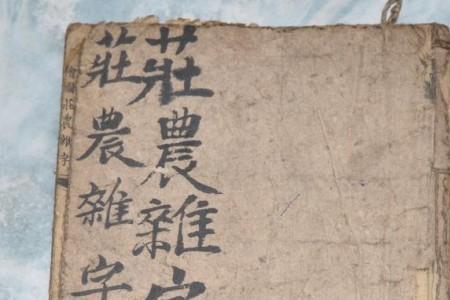 莊農雜字
莊農雜字